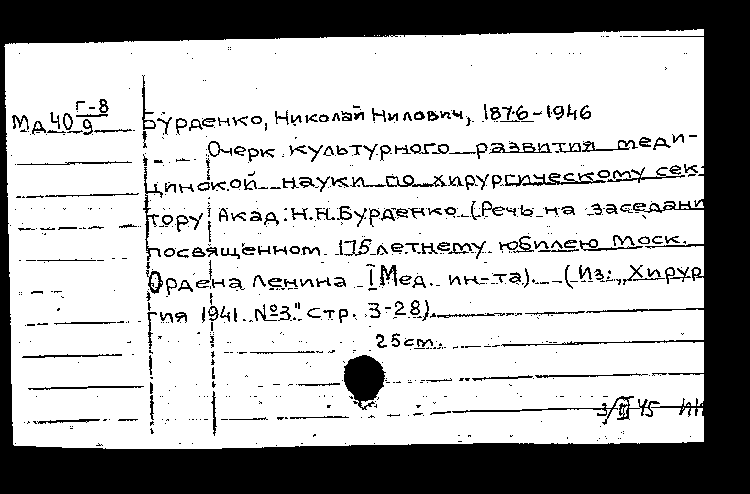 Мд 40 Г-8/9
Бурденко, Николай Нилович, 1876-1946
Очерк культурного развития меди-
цинской науки по хирургическому сек-
тору. Акад. Н.Н. Бурденко (Речь на заседани
посвященном 175 летнему юбилею Моск.
Ордена Ленина I Мед. ин-та). (Из: „Хирур
гия 1941. №3." стр. 3-28).
25 см.
3/II 45